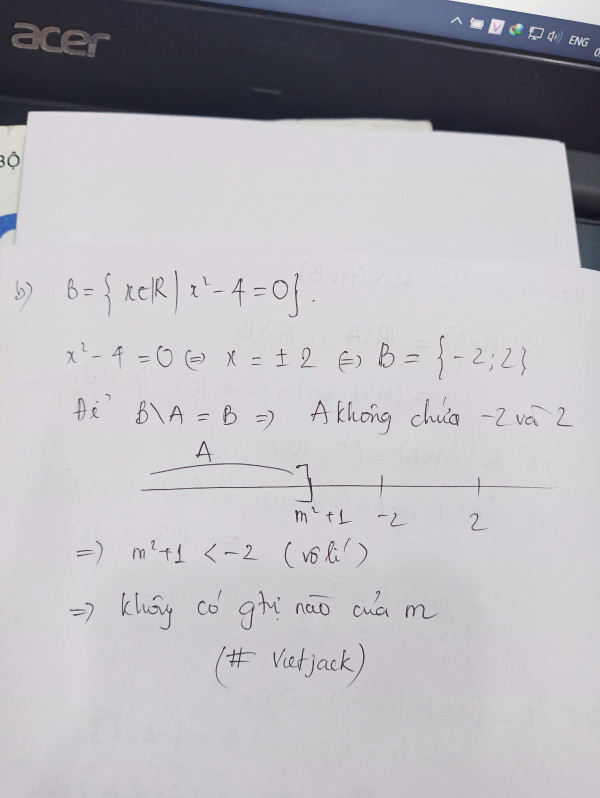 acer
ENG
BỘ
b) B = { x ∈ R | x² - 4 = 0 }.
x² - 4 = 0 ⇔ x = ± 2 ⇔ B = { -2; 2 }
Để B \ A = B ⇒ A không chứa -2 và 2
A
m² + 1 -2 2
⇒ m² + 1 < -2 (vô lí)
⇒ không có gtrị nào của m
(# Vietjack)